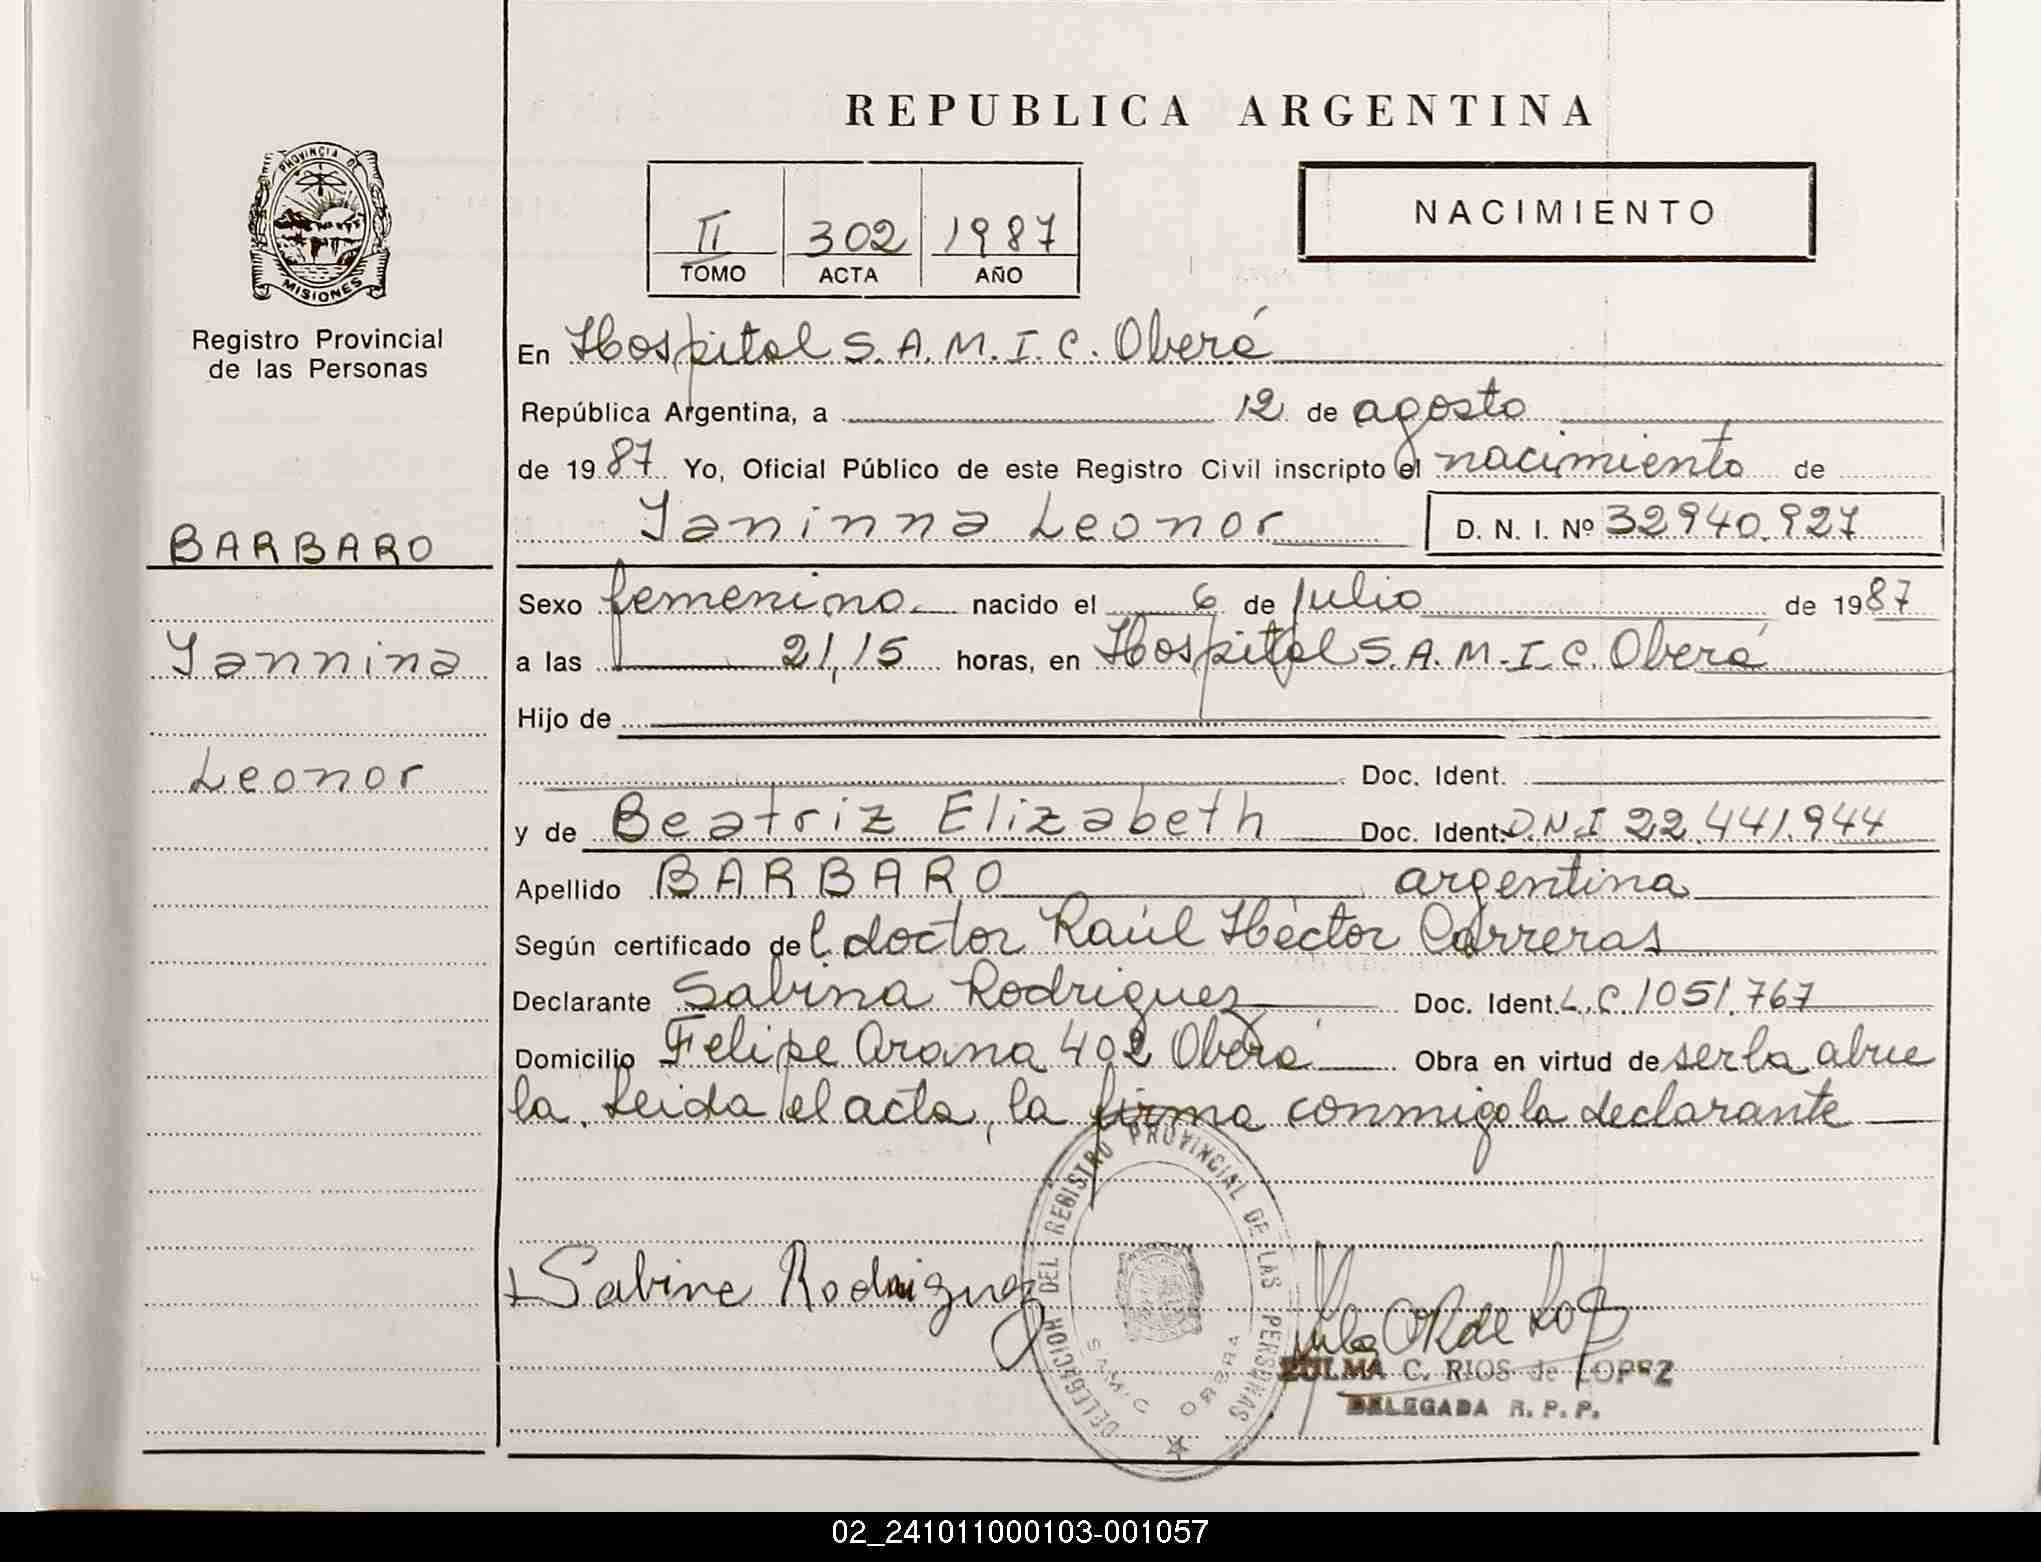 REPUBLICA ARGENTINA
PROVINCIA DE
MISIONES
Registro Provincial
de las Personas
II 302 1987
TOMO ACTA AÑO
NACIMIENTO
En Hospital S.A.M.I.C. Oberá
República Argentina, a 12 de agosto
de 1987 Yo, Oficial Público de este Registro Civil inscripto el nacimiento de
Yaninna Leonor D. N. I. Nº 32940.927
BARBARO
Sexo femenino nacido el 6 de Julio de 1987
Yannina
a las 21,15 horas, en Hospital S.A.M.I.C. Oberá
Hijo de
Leonor
Doc. Ident.
y de Beatriz Elizabeth Doc. Ident. D.N.I 22.441.944
Apellido BARBARO argentina
Según certificado del doctor Raúl Héctor Carreras
Declarante Sabina Rodriguez Doc. Ident. L.C. 1051.767
Domicilio Felipe Arana 402 Oberá Obra en virtud de ser la abue
la. Leida el acta, la firma conmigo la declarante
DELEGACION DEL REGISTRO PROVINCIAL DE LAS PERSONAS
SAMIC OBERA
Sabine Rodriguez
ZULMA C. RIOS de LOPEZ
DELEGADA R. P. P.
02_241011000103-001057